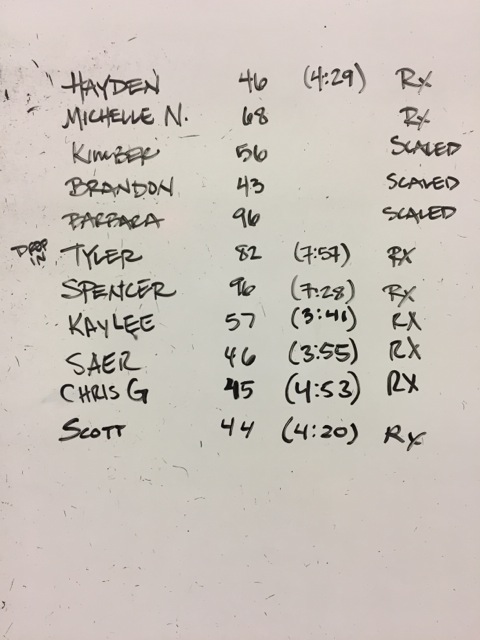 HAYDEN 46 (4:29) RX
MICHELLE N. 68 RX
KIMBER 56 SCALED
BRANDON 43 SCALED
BARBARA 96 SCALED
DROP IN TYLER 82 (7:57) RX
SPENCER 96 (7:28) RX
KAYLEE 57 (3:41) RX
SAER 46 (3:55) RX
CHRIS G 45 (4:53) RX
SCOTT 44 (4:20) RX